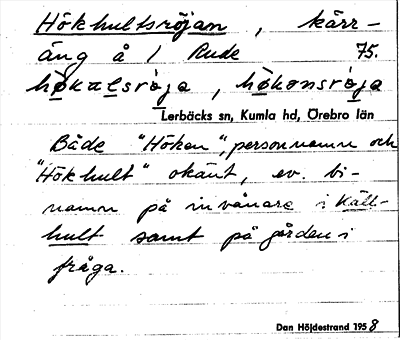 Hökhultsröjan, kärr-
äng å 1 Rude 75.
hökalsröja, hökonsröja
Lerbäcks sn, Kumla hd, Örebro län
Både "Höken", personnamn och
"Hökhult" okänt, ev. bi-
namn på invånare i Käll-
hult samt på gården i
fråga.
Dan Höjdestrand 1958